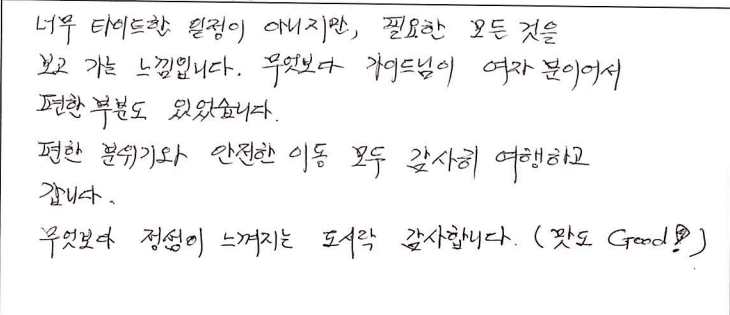 너무 타이트한 일정이 아니지만, 필요한 모든 것을
보고 가는 느낌입니다. 무엇보다 가이드님이 여자 분이어서
편한 부분도 있었습니다.
편한 분위기와 안전한 이동 모두 감사히 여행하고
갑니다.
무엇보다 정성이 느껴지는 도시락 감사합니다. (맛도 Good!)